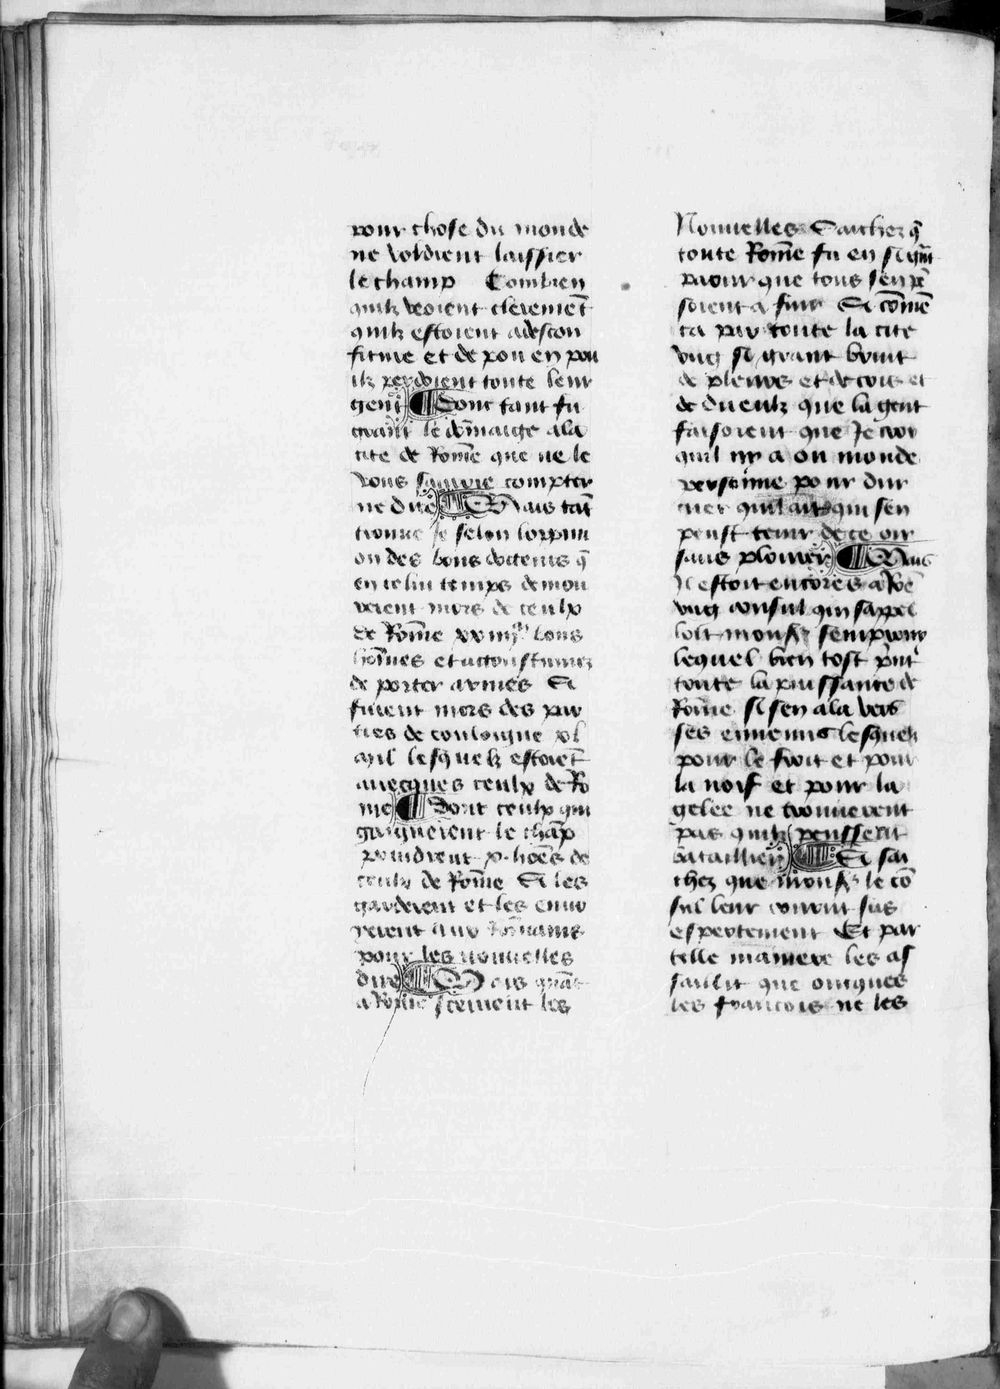 pour chose du monde
ne voldient laissier
le champ Combien
quilz veoient cleremēt
quilz estoient a descon
fiture et de pou en pou
ilz perdoient toute leur
gent ¶ Donc tant fu
grant le dōmaige a la
cite de Rōme que ne le
vous sauroie compter
ne dire ¶ Mais tāt
trouue Je selon loppini
on des bons docteurs q̄
en icelui temps demou
rerent mors de ceulx
de Rōme xxiiij bons
hōmes et acoustumez
de porter armes Si
furent mors des par
ties de couloigne xl
mil lesquelz estoiēt
auecques ceulx de Ro
me ¶ Dont ceulx qui
gaignerent le chāp
prindrent x. hōēs de
ceulx de Rōme Si les
garderent et les enuo
yerent aux Rōmains
pour les nouuelles
dire ¶ Mais quāt
a Rōme sceurent les
Nouuelles Saichez q̄
toute Rōme fu en si grāt
paour que tous sen pē
soient a fuir Si cōmē
ca par toute la cite
vng si grant bruit
de pleurs et de cris et
de dueulz que la gent
faisoient que Je croy
quil ny a ou monde
personne pour dur
cuer quil ait qui sen
peust tenir de ce oir
sans plourer ¶ Mais
Il estoit encores a Rōē
vng consul qui sappel
loit monsr sempronij
lequel bien tost prīt
toute la puissance de
Rōme si sen ala vers
ses ennemis lesquelz
pour le froit et pour
la noif et pour la
gelee ne trouuerent
pas quilz peussent
bataillier ¶ Si sai
chez que monsr le cō
sul leur courut sus
espertement Et par
telle maniere les as
saillit que oncques
les francois ne les